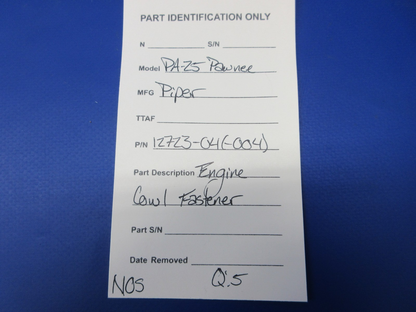 PART IDENTIFICATION ONLY
N S/N
Model PA-25 Pawnee
MFG Piper
TTAF
P/N 12723-04(-004)
Part Description Engine
Cowl Fastener
Part S/N
Date Removed
NOS Q:5